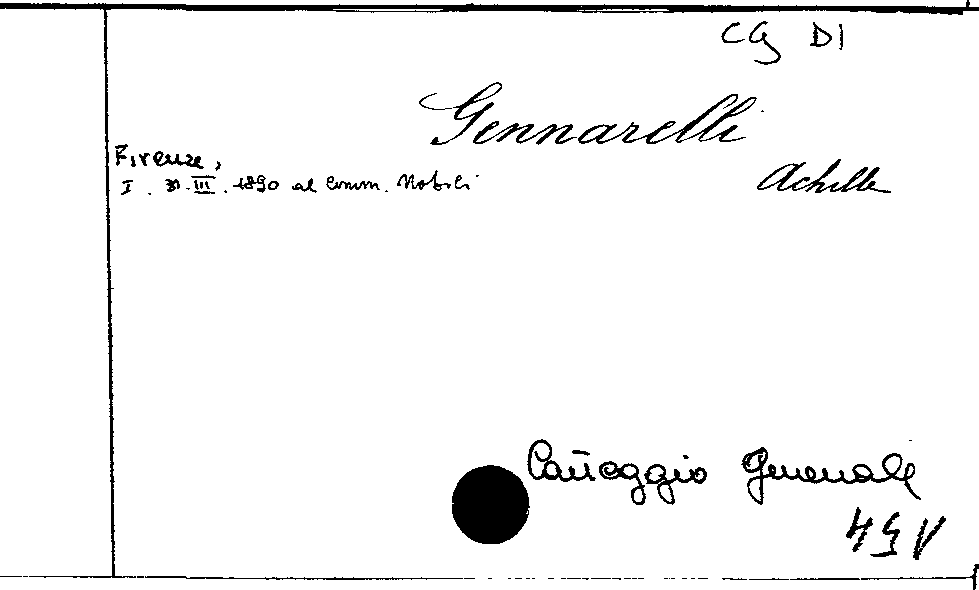 CG DI
Gennarelli
Achille
Firenze,
I. 31. III. 1890 al Comm. Nobili
Carteggio Generale